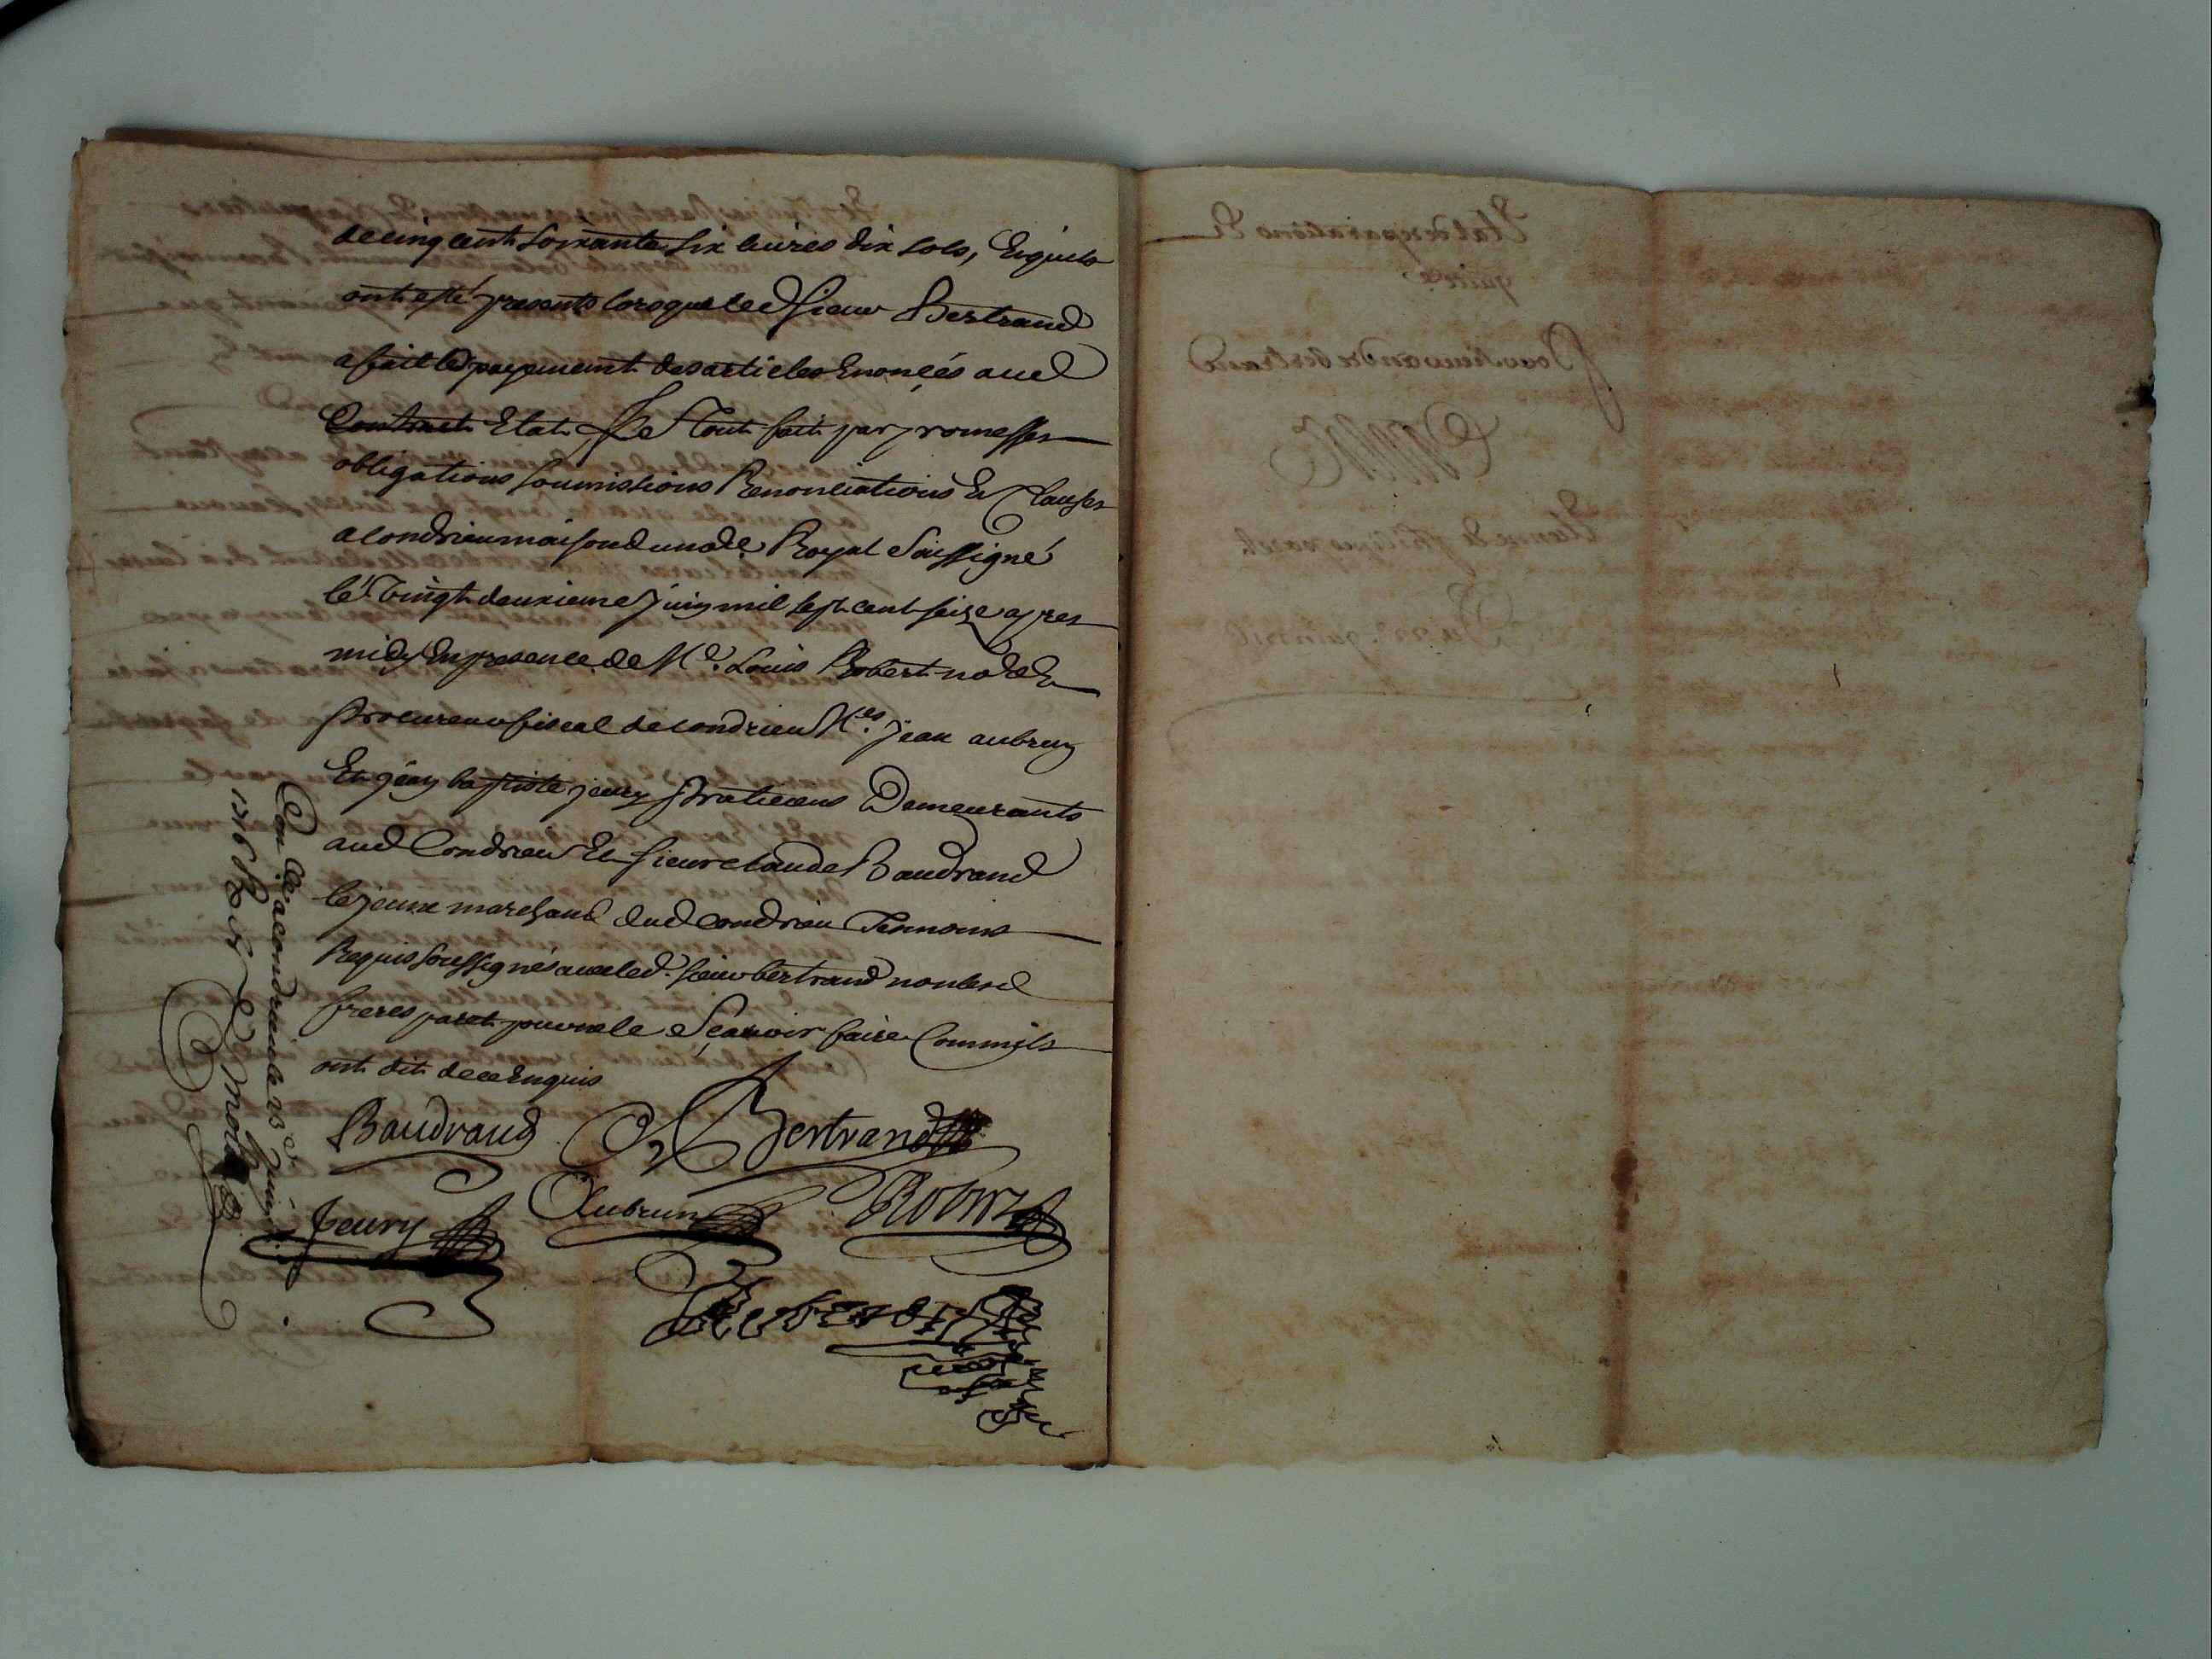 de cinq cent soixante six livres dix sols, Et quils
ont esté presents lorsque led sieur Bertrand
a fait led payement des articles Enoncés aud
Contract Etat Le Tout fait par promesses
obligations soumissions Renonciations Et Clauses
a Condrieu maison du no.re Royal Soussigné
le Vingt deuxieme Juin mil sept cent seize apres
midy En presence de M.e Louis Robert no.re Et
procureur fiscal de Condrieu M.es Jean aubrun
Et Jean baptiste jeury praticiens Demeurants
aud Condrieu Et sieur claude Baudrand
le jeune marchand dud Condrieu Tesmoins
Requis soussignés avec led. sieur bertrand non lesd
freres paret pour ne le Sçavoir faire Comm'ils
ont dit de ce Enquis
Baudrand Bertrand
Jeury Aubrun Robert
Con.lé a condrieu le 23e juin
1716
Etat de reparations Et
quitt.
Pour sieur andré bertrand
Du 22e juin 1716